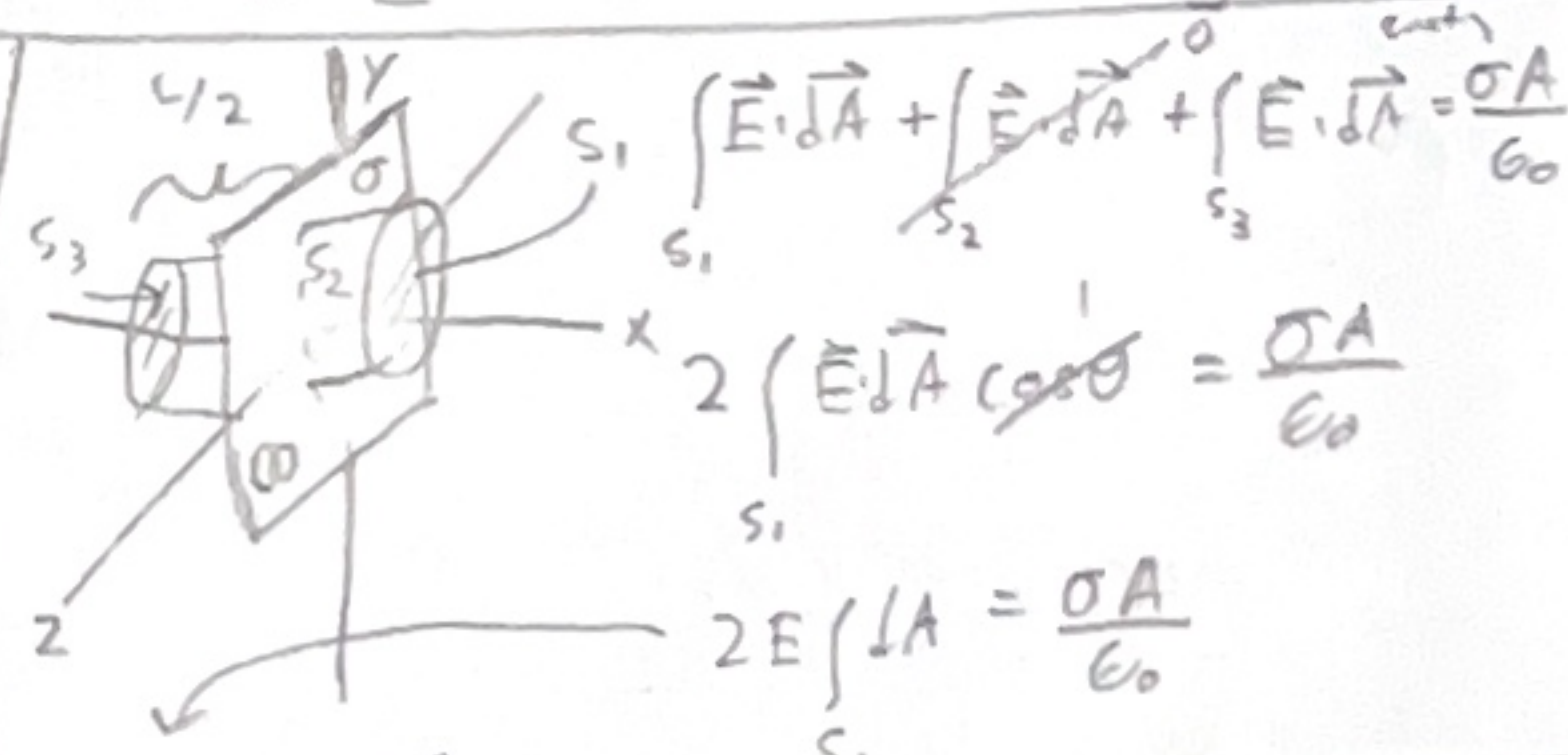 L/2
Y
σ
S₁
S₃
S₂
X
∞
Z
∫S₁ E⃗·dA⃗ + ∫S₂ E⃗·dA⃗ 0 + ∫S₃ E⃗·dA⃗ = σA/ε₀
2 ∫S₁ E⃗·dA⃗ cosθ 1 = σA/ε₀
2E ∫S dA = σA/ε₀